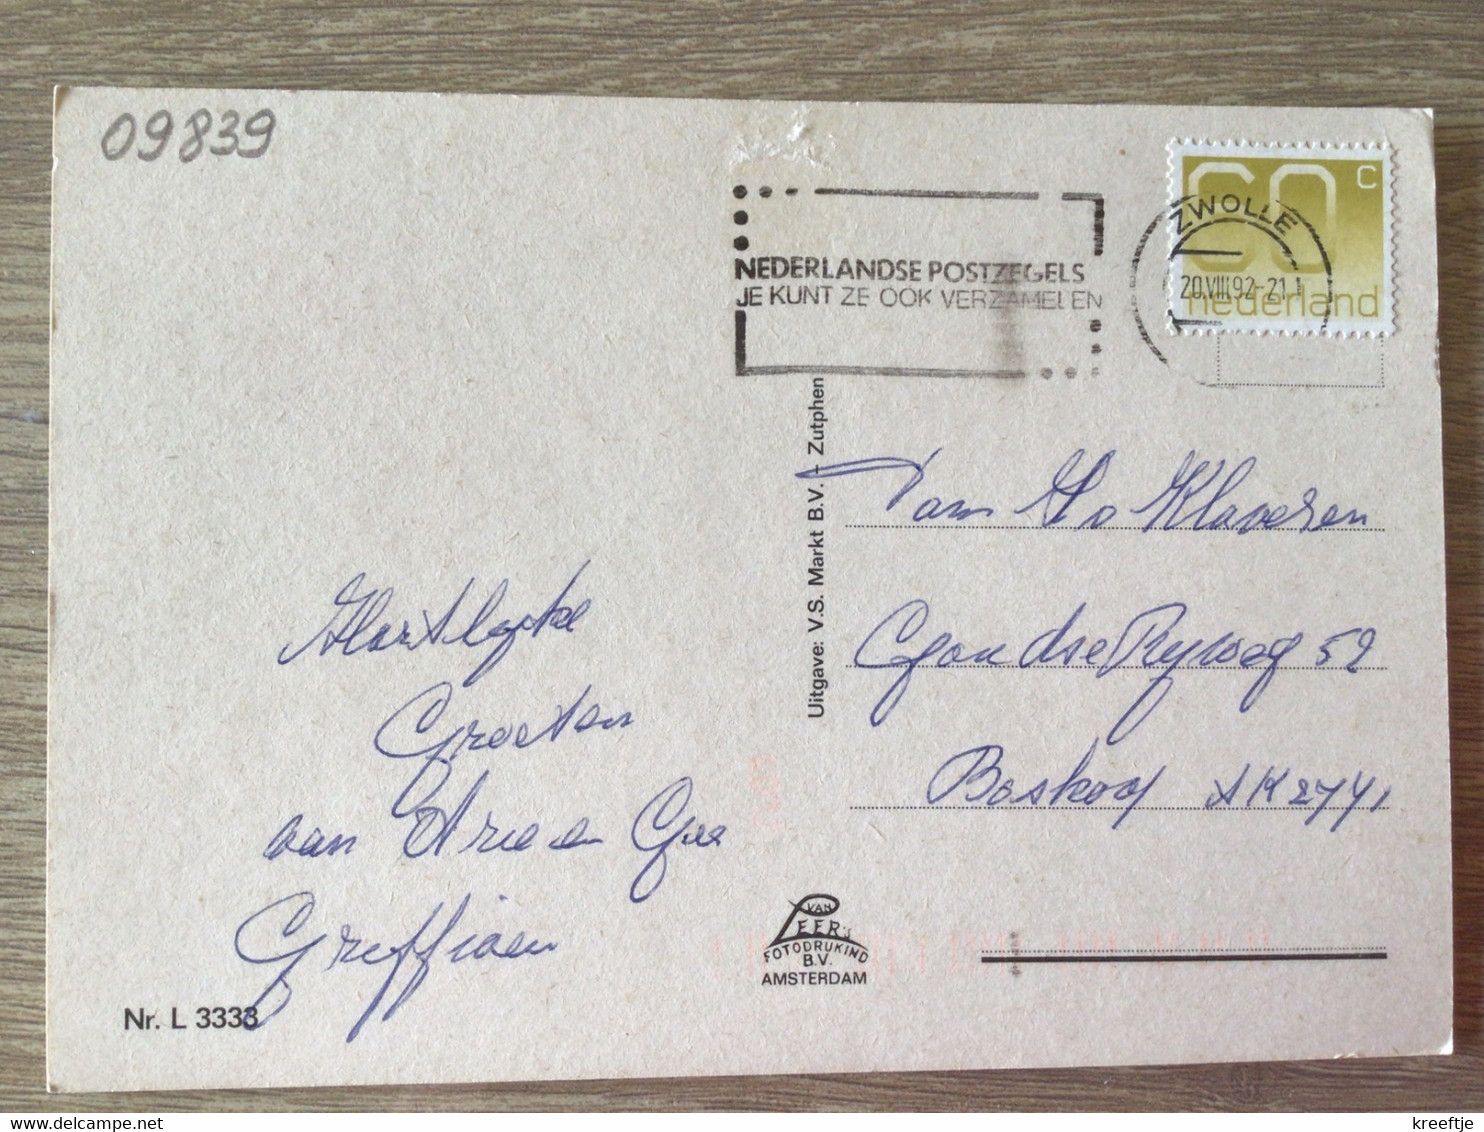 09839
NEDERLANDSE POSTZEGELS
JE KUNT ZE OOK VERZAMELEN
ZWOLLE
20.VIII.92-21
60 C
nederland
Uitgave: V.S. Markt B.V. - Zutphen
Fam v Klaveren
Goudse Rijweg 52
Boskoop AK 2771
Hartelyke
Groeten
van Arie en
Griffioen
VAN
LEER's
FOTODRUKIND
B.V.
AMSTERDAM
Nr. L 3333
www.delcampe.net
kreeftje